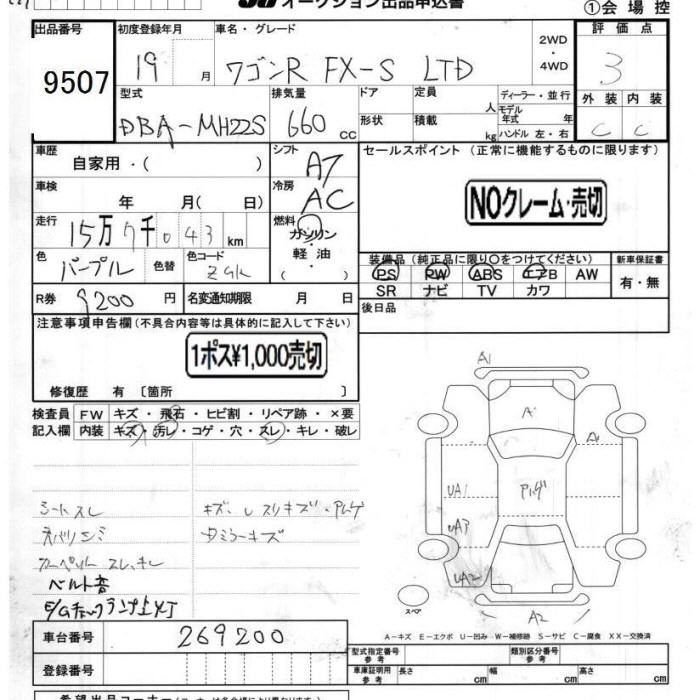 オークション出品申込書
①会場控
出品番号
9507
初度登録年月
19 月
車名・グレード
ワゴンR FX-S LTD
2WD
・
4WD
評価点
3
外装 内装
C C
型式
DBA-MH22S
排気量
660 cc
ドア
形状
定員 人
積載 kg
ディーラー・並行
モデル年式 年
ハンドル 左・右
車歴
自家用・( )
シフト
A7
車検
年 月( 日)
冷房
AC
走行
15万7千043 km
燃料
ガソリン
軽油
( ・ )
色
パープル
色替
色コード
R券
200 円
名変通知期限 月 日
セールスポイント (正常に機能するものに限ります)
NOクレーム・売切
装備品 (純正品に限り○をつけてください)
PS PW ABS エアB AW
SR ナビ TV カワ
新車保証書
有・無
後日品
注意事項申告欄(不具合内容等は具体的に記入して下さい)
1ポス¥1,000売切
修復歴 有 〔箇所 〕
検査員記入欄
FW キズ・飛石・ヒビ割・リペア跡・×要
内装 キズ・汚レ・コゲ・穴・スレ・キレ・破レ
シートスレ
ネバリジミ
カーペットスレ、キレ
ベルト音
E/Gチェックランプ点灯
キズ、スリキズ・アルゲ
ドアミラーキズ
A1
A
A
アハゲ
UA1
UA3
UA2
A2
スペア
A-キズ E-エクボ U-凹み W-補修跡 S-サビ C-腐食 XX-交換済
車台番号
269200
登録番号
型式指定番号
参考
類別区分番号
参考
車庫証明用
参考
長さ cm
幅 cm
高さ cm